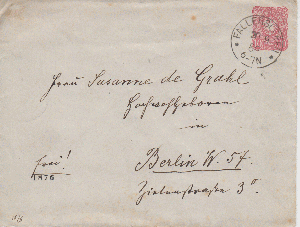 FALLERSLEBEN
6-7N
Frau Susanne de Grahl
Hochwohlgeboren
in
frei!
1876
Berlin W. 57.
Zietenstraße 3 II